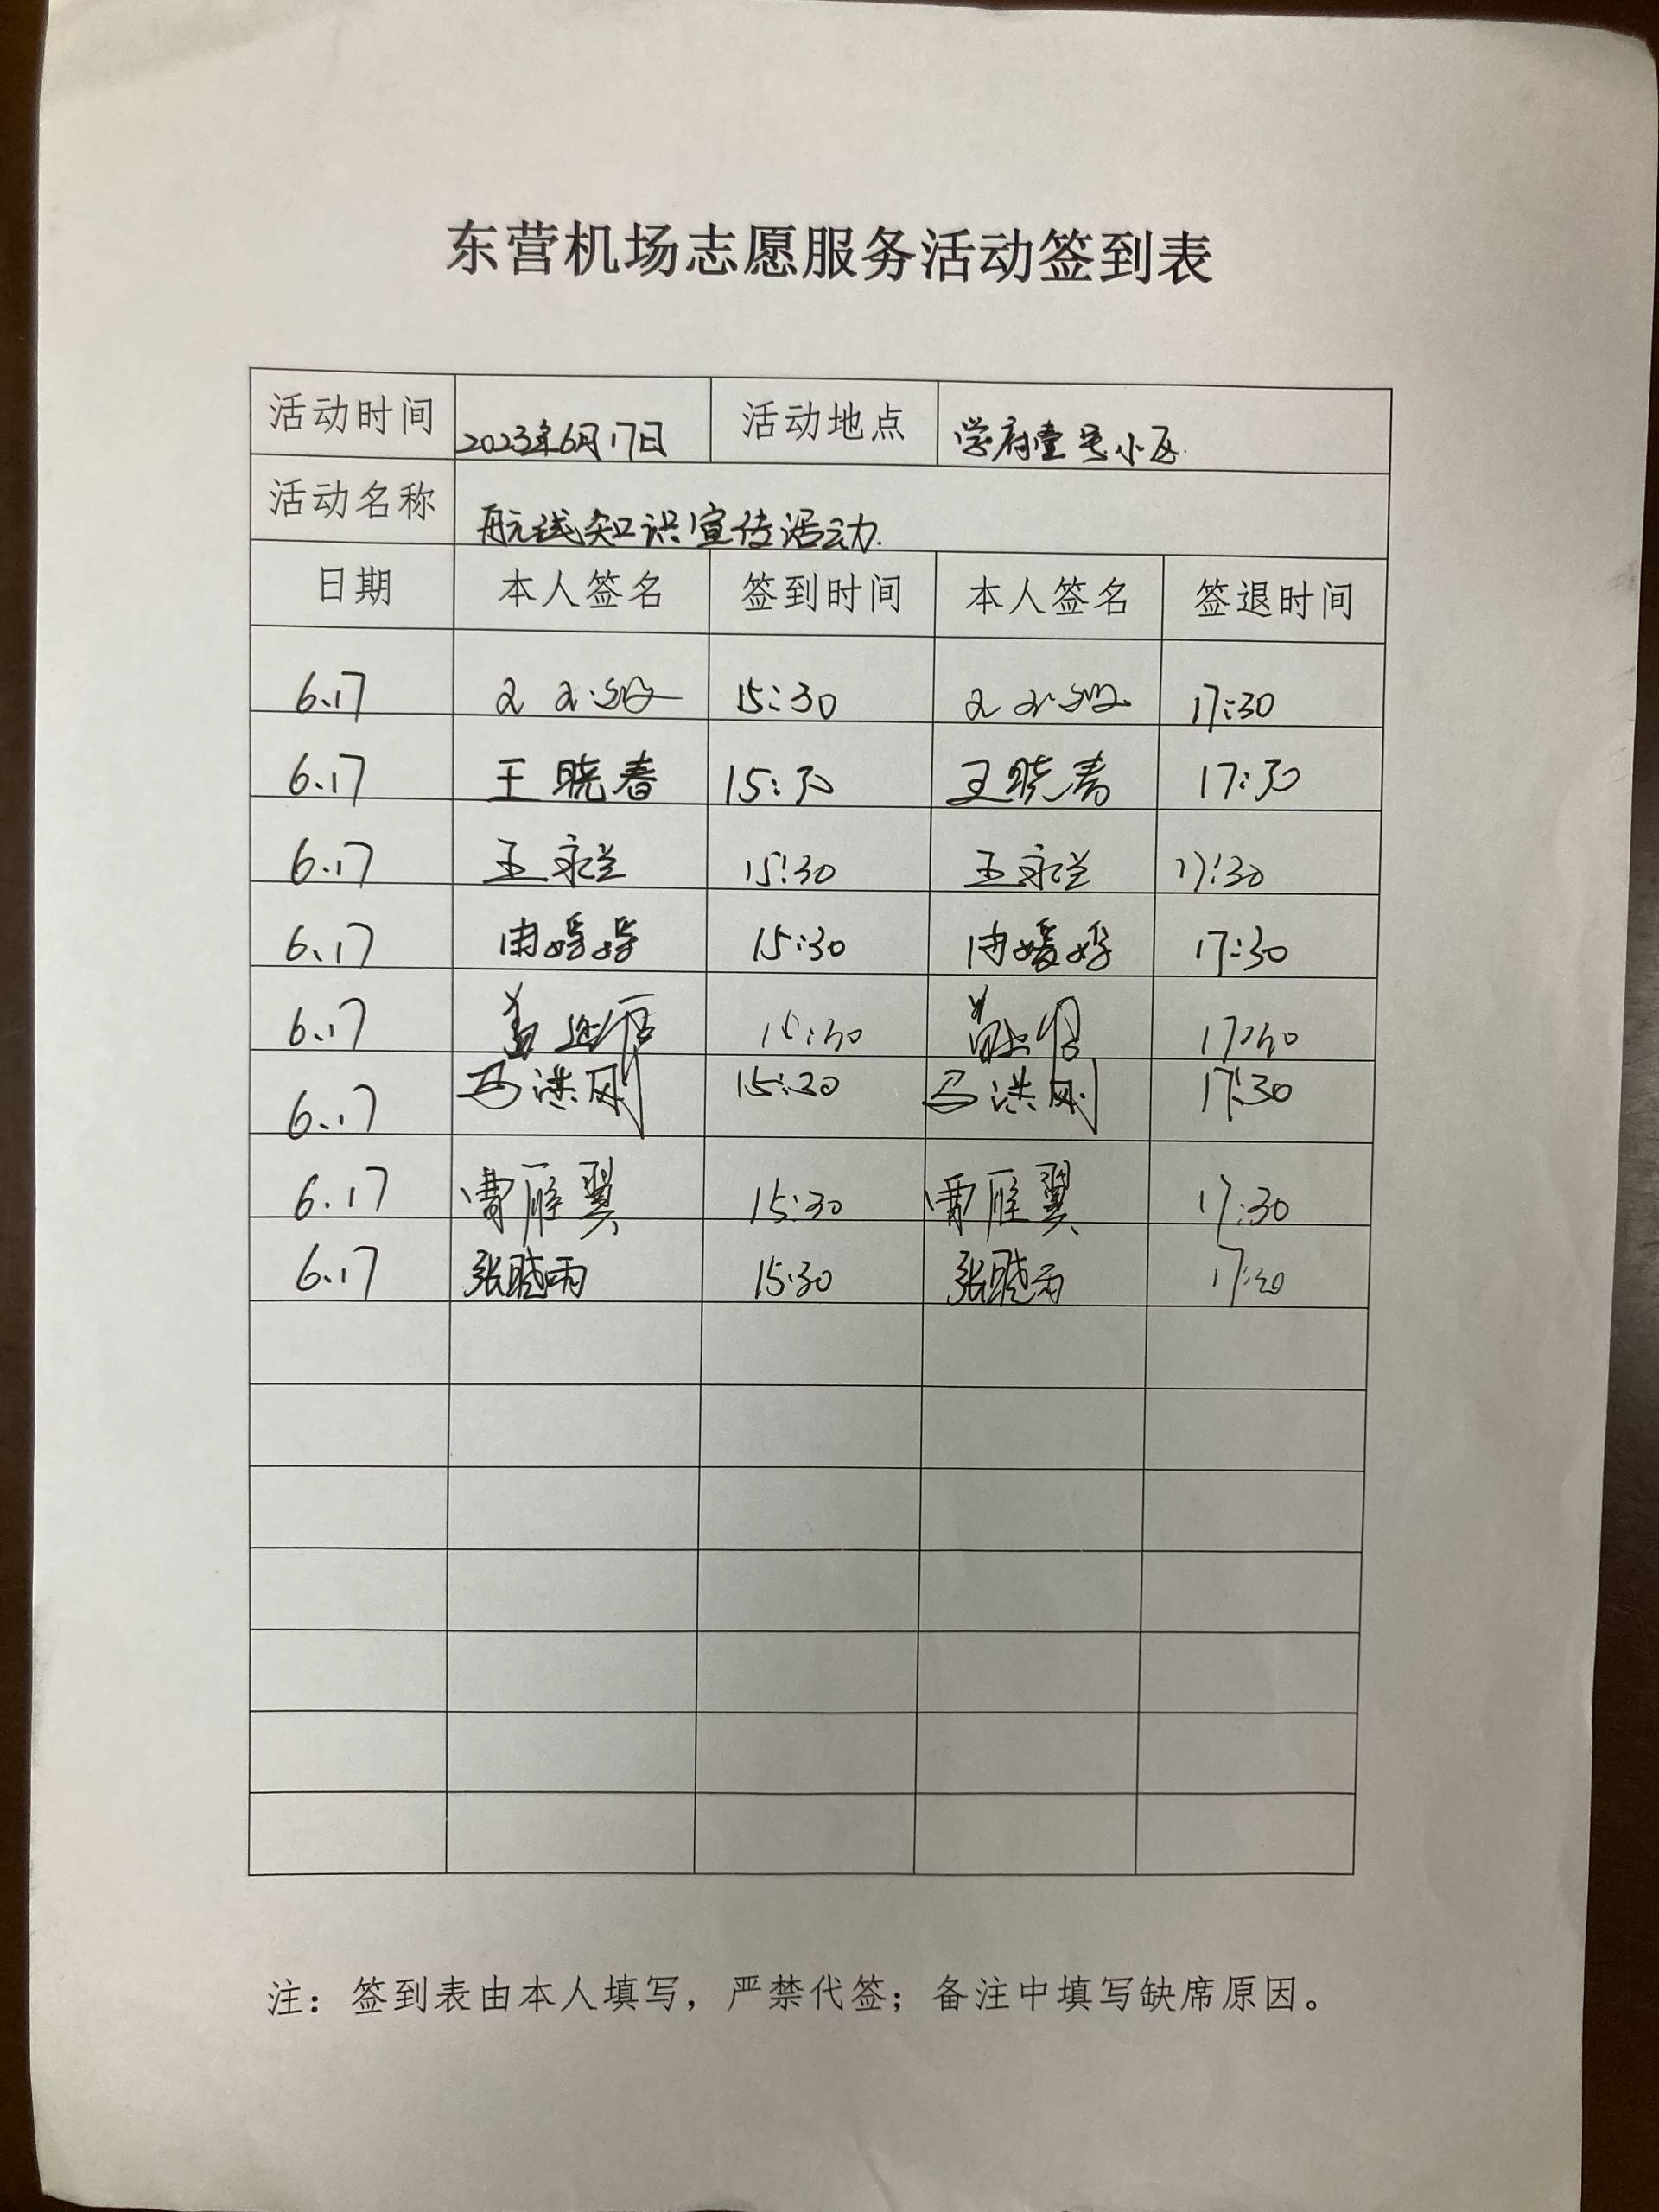 东营机场志愿服务活动签到表
活动时间 2023年6月17日 活动地点 学府壹号小区
活动名称 航线知识宣传活动
日期 本人签名 签到时间 本人签名 签退时间
6.17 15:30 17:30
6.17 王晓春 15:30 王晓春 17:30
6.17 王永兰 15:30 王永兰 17:30
6.17 15:30 17:30
6.17 15:30 17:30
6.17 马洪刚 15:30 马洪刚 17:30
6.17 曹雁翼 15:30 曹雁翼 17:30
6.17 张晓雨 15:30 张晓雨 17:30
注：签到表由本人填写，严禁代签；备注中填写缺席原因。